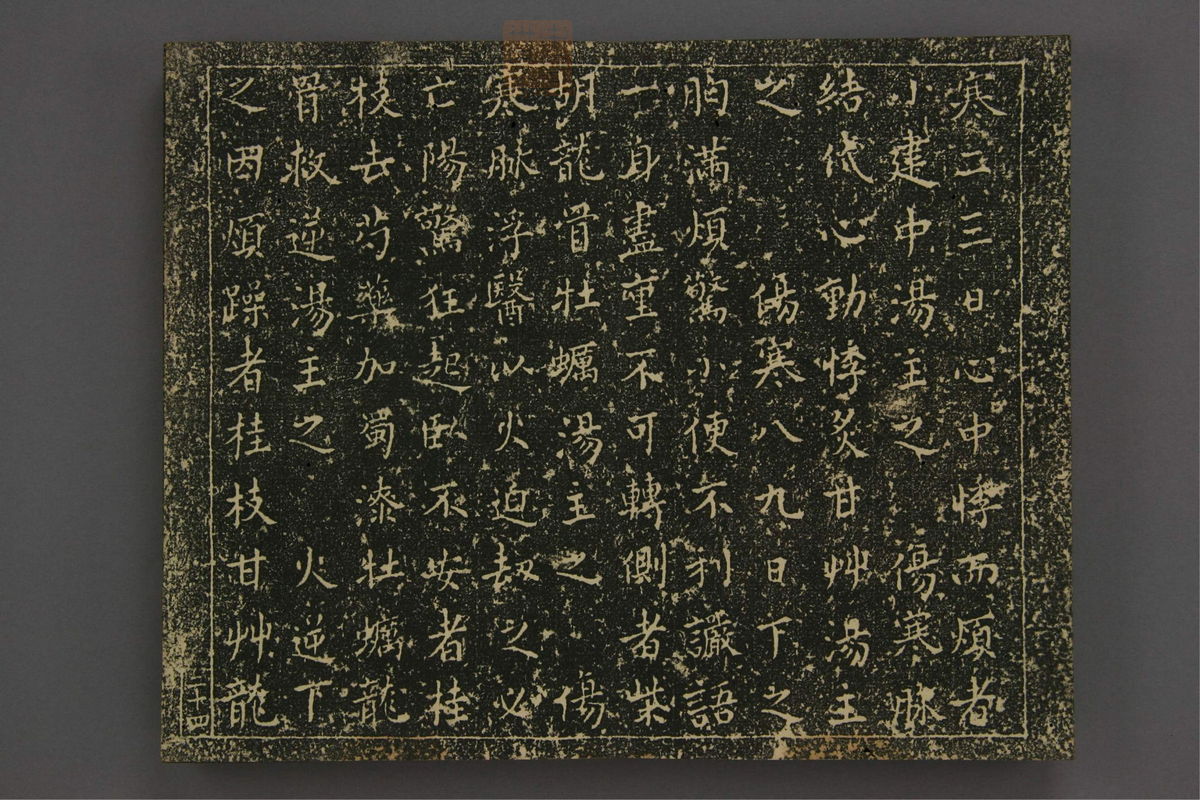 寒二三日心中悸而煩者
小建中湯主之　傷寒脉
結代心動悸炙甘艸湯主
之　　傷寒八九日下之
胸滿煩驚小便不利讝語
一身盡重不可轉側者柴
胡龍骨牡蠣湯主之　傷
寒脉浮醫以火迫劫之必
亡陽驚狂起臥不安者桂
枝去芍藥加蜀漆牡蠣龍
骨救逆湯主之　火逆下
之因煩躁者桂枝甘艸龍
二十四